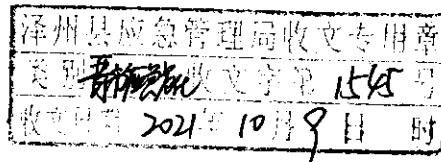 泽州县应急管理局收文专用章
类别 收文字第 1545 号
收文日期 2021年 10月 9 日 时